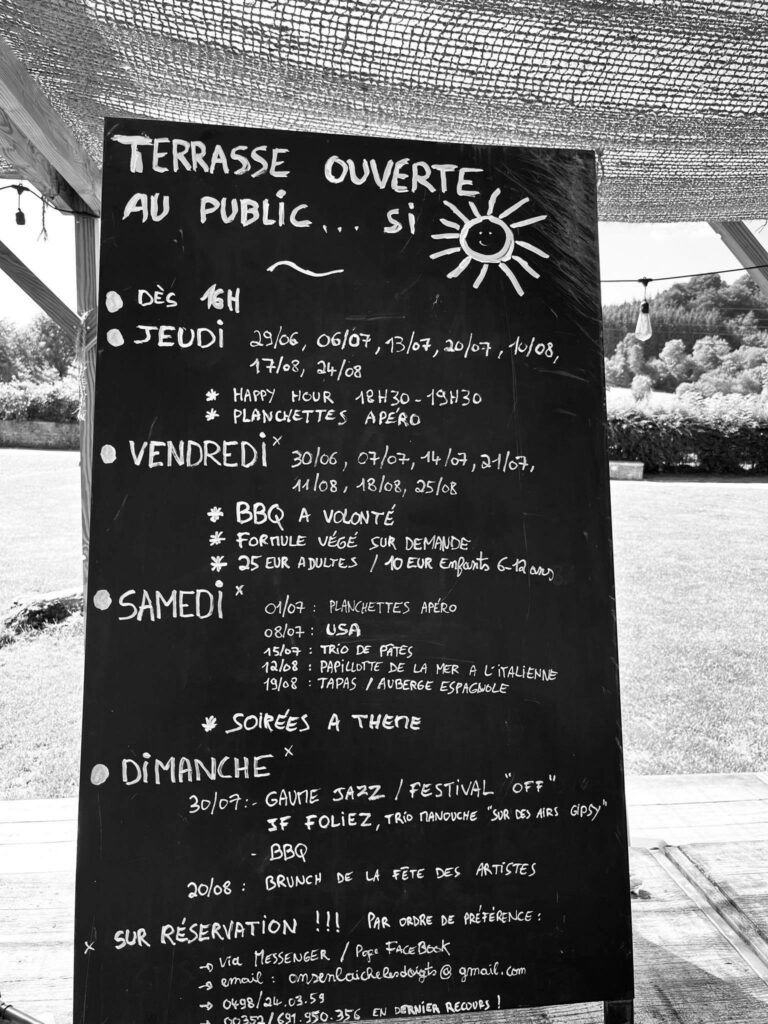 TERRASSE OUVERTE
AU PUBLIC... Si
DÈS 16H
JEUDI 29/06, 06/07, 13/07, 20/07, 10/08,
17/08, 24/08
* HAPPY HOUR 18H30-19H30
* PLANCHETTES APÉRO
VENDREDI x 30/06, 07/07, 14/07, 21/07,
11/08, 18/08, 25/08
* BBQ A VOLONTÉ
* FORMULE VÉGÉ SUR DEMANDE
* 25 EUR ADULTES / 10 EUR Enfants 6-12 ans
SAMEDI x 01/07 : PLANCHETTES APÉRO
08/07 : USA
15/07 : TRIO DE PÂTES
12/08 : PAPILLOTTE DE LA MER A L'ITALIENNE
19/08 : TAPAS / AUBERGE ESPAGNOLE
* SOIRÉES A THEME
DIMANCHE x
30/07:- GAUME JAZZ / FESTIVAL "OFF"
JF FOLIEZ, TRIO MANOUCHE "SUR DES AIRS GIPSY"
- BBQ
20/08 : BRUNCH DE LA FÊTE DES ARTISTES
x SUR RÉSERVATION !!! PAR ORDRE DE PRÉFÉRENCE :
→ via MESSENGER / Page FACEBOOK
→ email : onsenlaichelesdoigts@gmail.com
→ 0498/24.03.59
→ 00352/691.950.356 EN DERNIER RECOURS !